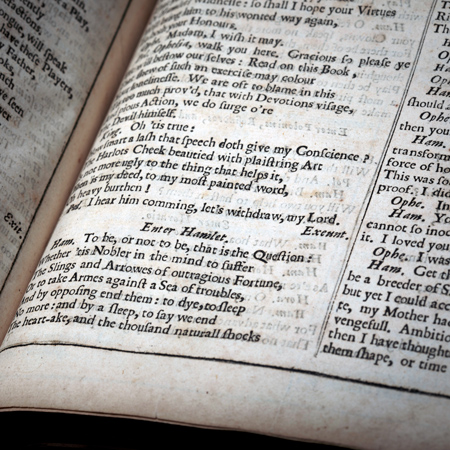 gue, will speak
these Players
Exit.
: so shall I hope your Virtues
to his wonted way again,
Honours.
Madam, I wish it may.
Ophelia, walk you here. Gracious so please ye
bestow our selves: Read on this Book,
show of such an exercise may colour
lonelinesse. We are oft to blame in this
too much prov'd, that with Devotions visage,
pious Action, we do surge o're
Devil himself.
Oh 'tis true:
smart a lash that speech doth give my Conscience?
Harlots Cheek beautied with plaistring Art
not more ugly to the thing that helps it,
is my deed, to my most painted word,
heavy burthen!
Pol. I hear him comming, let's withdraw, my Lord.
Exeunt.
Enter Hamlet.
Ham. To be, or not to be, that is the Question:
Whether 'tis Nobler in the mind to suffer
The Slings and Arrowes of outragious Fortune,
Or to take Armes against a Sea of troubles,
And by opposing end them: to dye, to sleep
No more: and by a sleep, to say we end
The heart-ake, and the thousand naturall shocks
Ham.
Oph
Ham
should
Ophe
then you
Ham.
transform
force of ho
This was so
proof. I did
Ophe. In
Ham. Yo
cannot so inoc
it. I loved you
Ophe. I was
Ham. Get th
be a breeder of S
but yet I could acc
te, my Mother ha
vengefull, Ambitio
then I have thought
them shape, or time